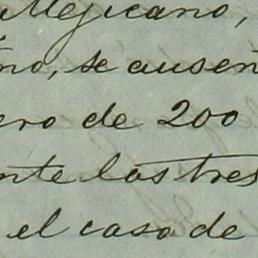 Mejicano,
no, se ausen
ero de 200
nte los tres
el caso de